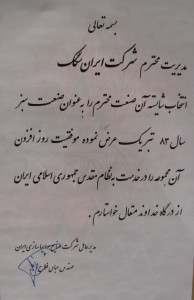 بسمه تعالی
مدیریت محترم شرکت ایران
انتخاب شایسته آن صنعت محترم را به عنوان صنعت سبز
سال ۸۲ تبریک عرض نموده موفقیت روز افزون
آن مجموعه را در خدمت به نظام مقدس جمهوری اسلامی ایران
از درگاه خداوند متعال خواستارم.
مدیرعامل شرکت صنایع سازی ایران
مهندس عباس